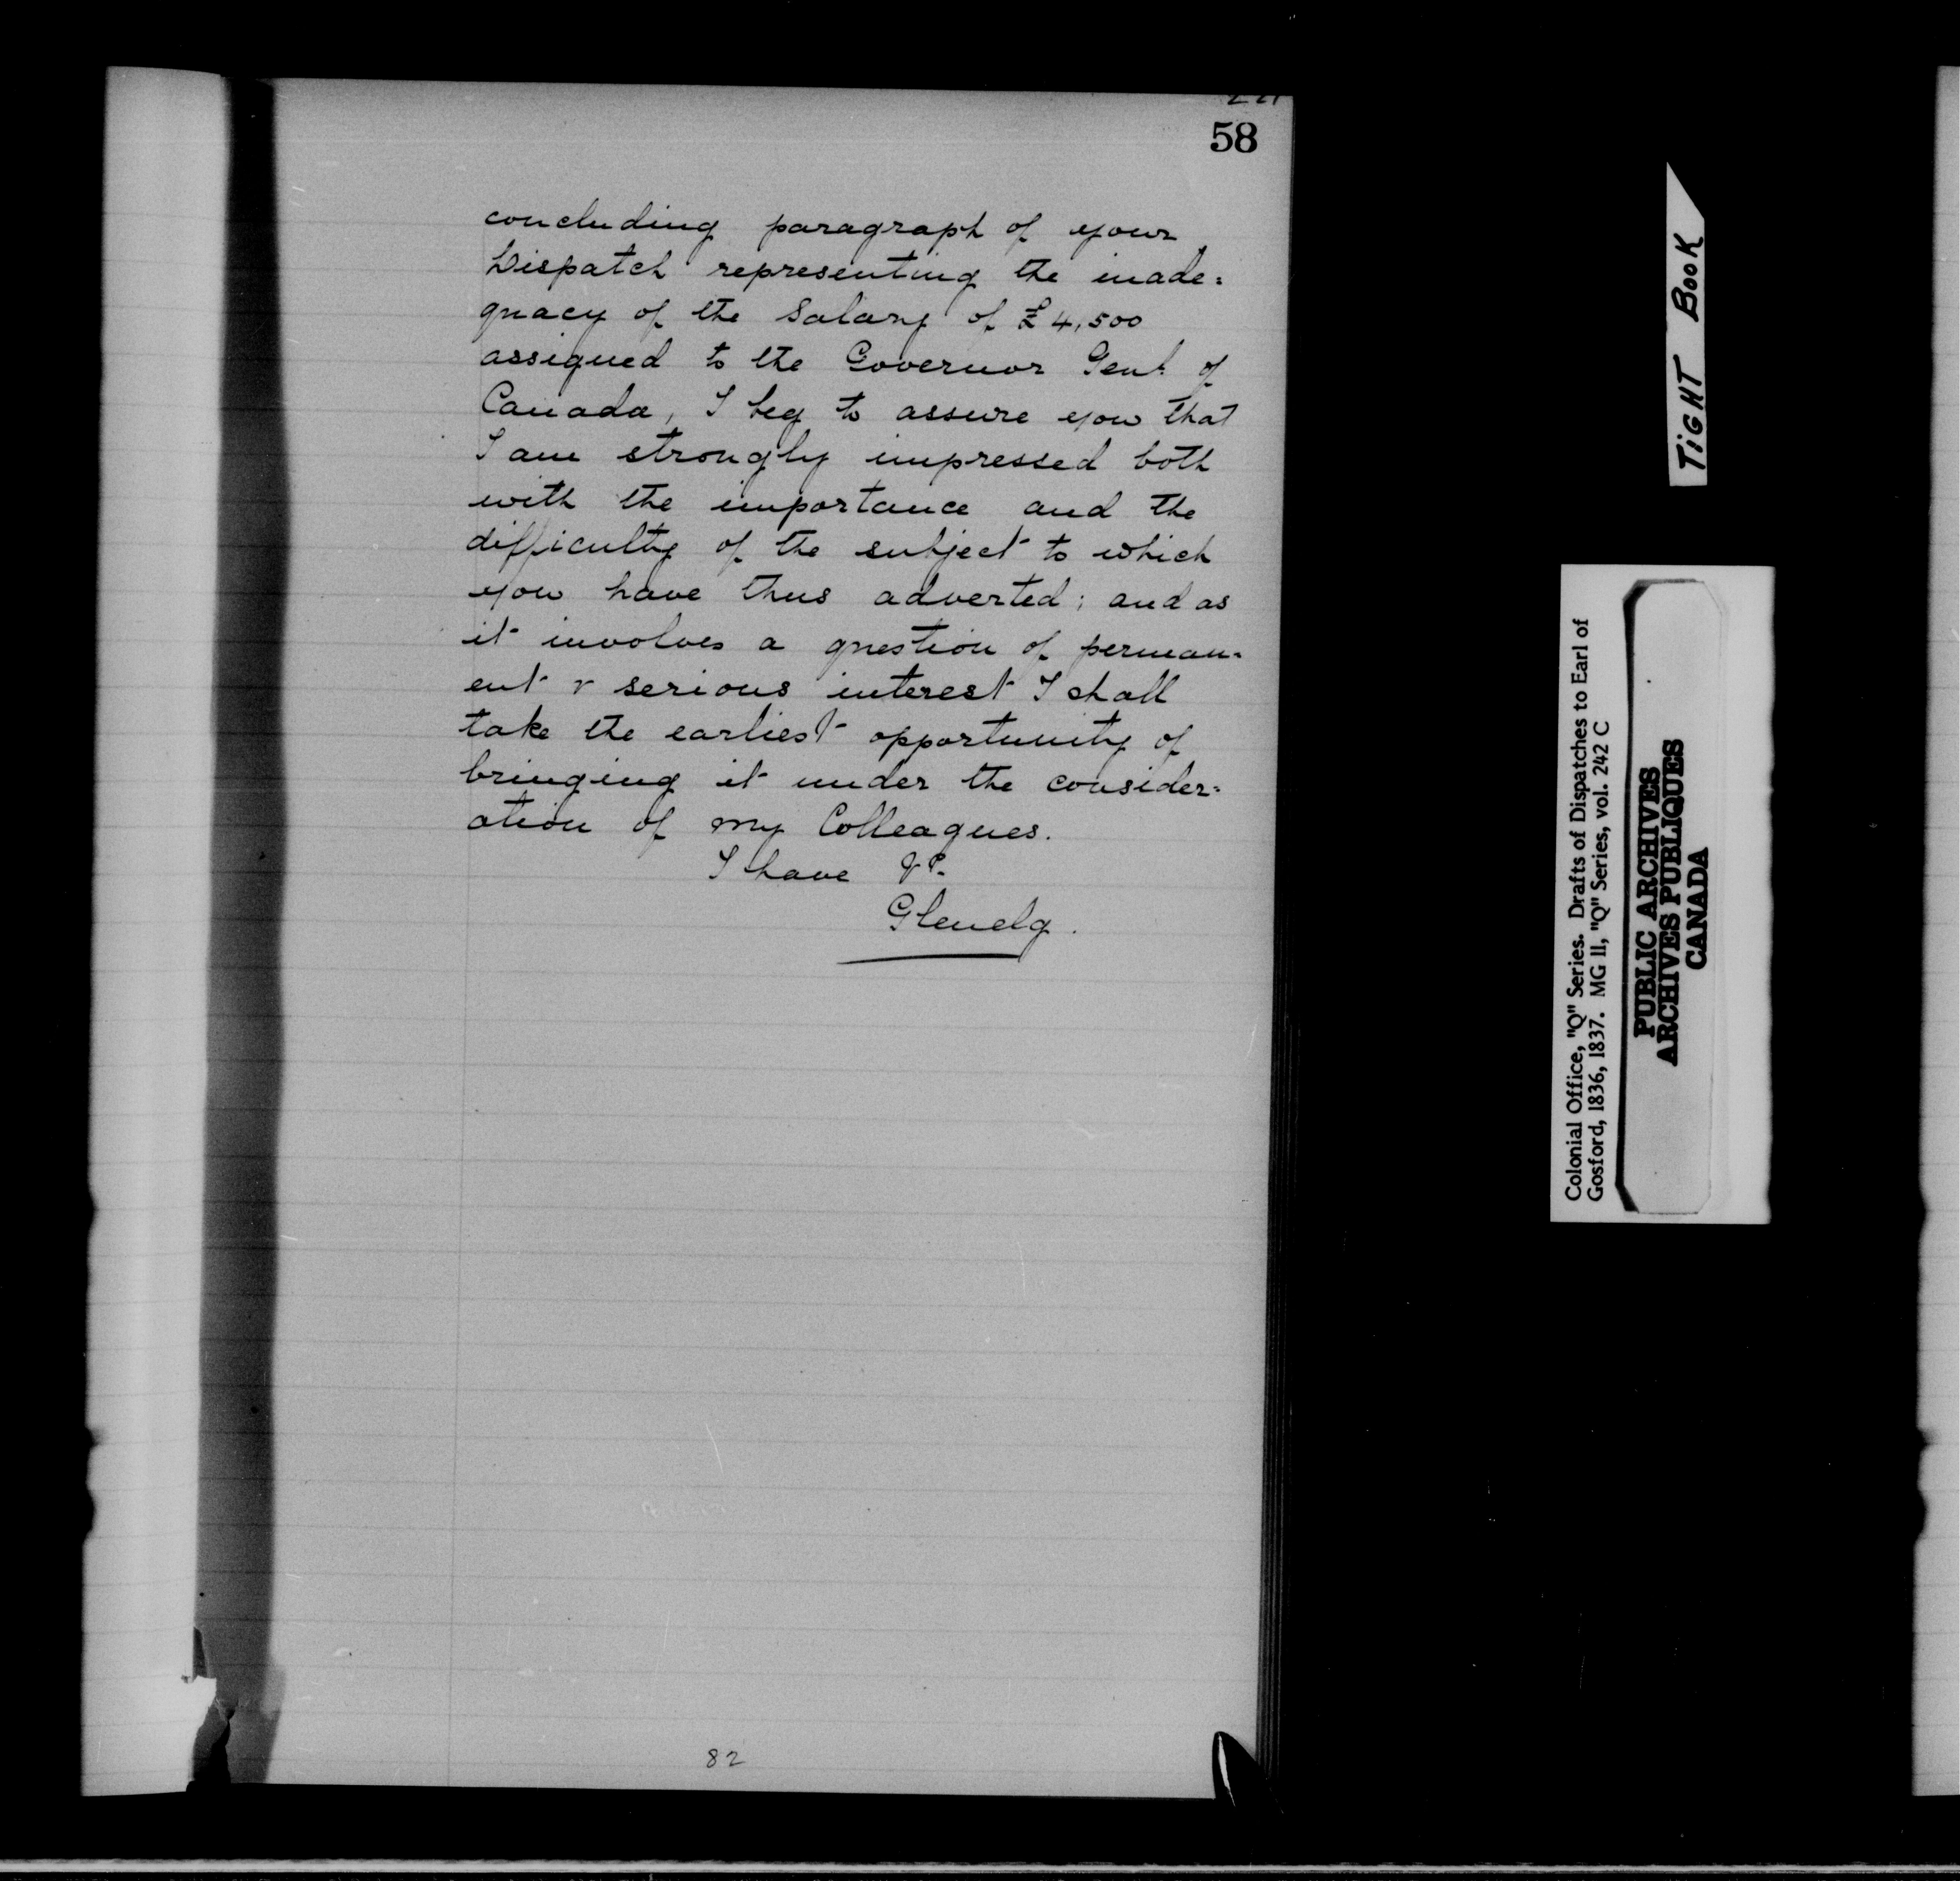 58
concluding paragraph of your
Dispatch representing the inade=
quacy of the Salary of £4,500
assigned to the Governor Genl. of
Canada, I beg to assure you that
I am strongly impressed both
with the importance and the
difficulty of the subject to which
you have thus adverted; and as
it involves a question of perman=
ent & serious interest I shall
take the earliest opportunity of
bringing it under the consider=
ation of my Colleagues.
I have &c.
Glenelg.
82
TIGHT BOOK
Colonial Office, "Q" Series. Drafts of Dispatches to Earl of
Gosford, 1836, 1837. MG 11, "Q" Series, vol. 242 C
PUBLIC ARCHIVES
ARCHIVES PUBLIQUES
CANADA